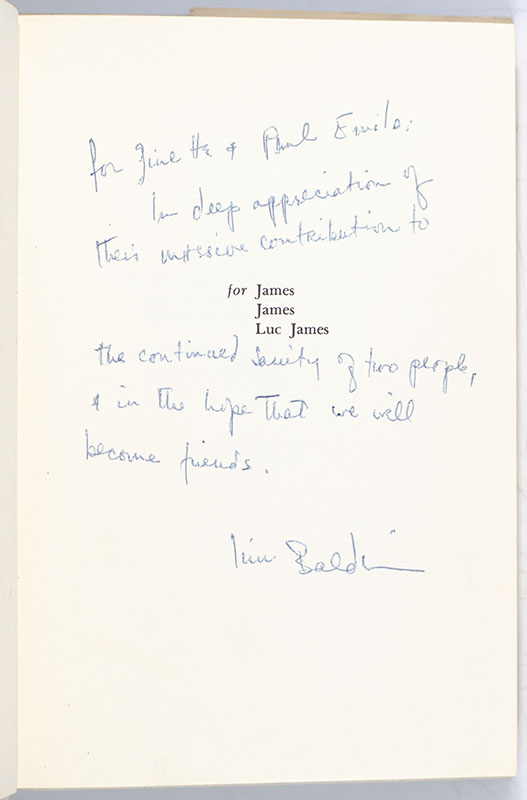 for Ginette & Paul Emile:
In deep appreciation of
their massive contribution to
for James
James
Luc James
the continued sanity of two people,
& in the hope that we will
become friends.
Jim Baldwin